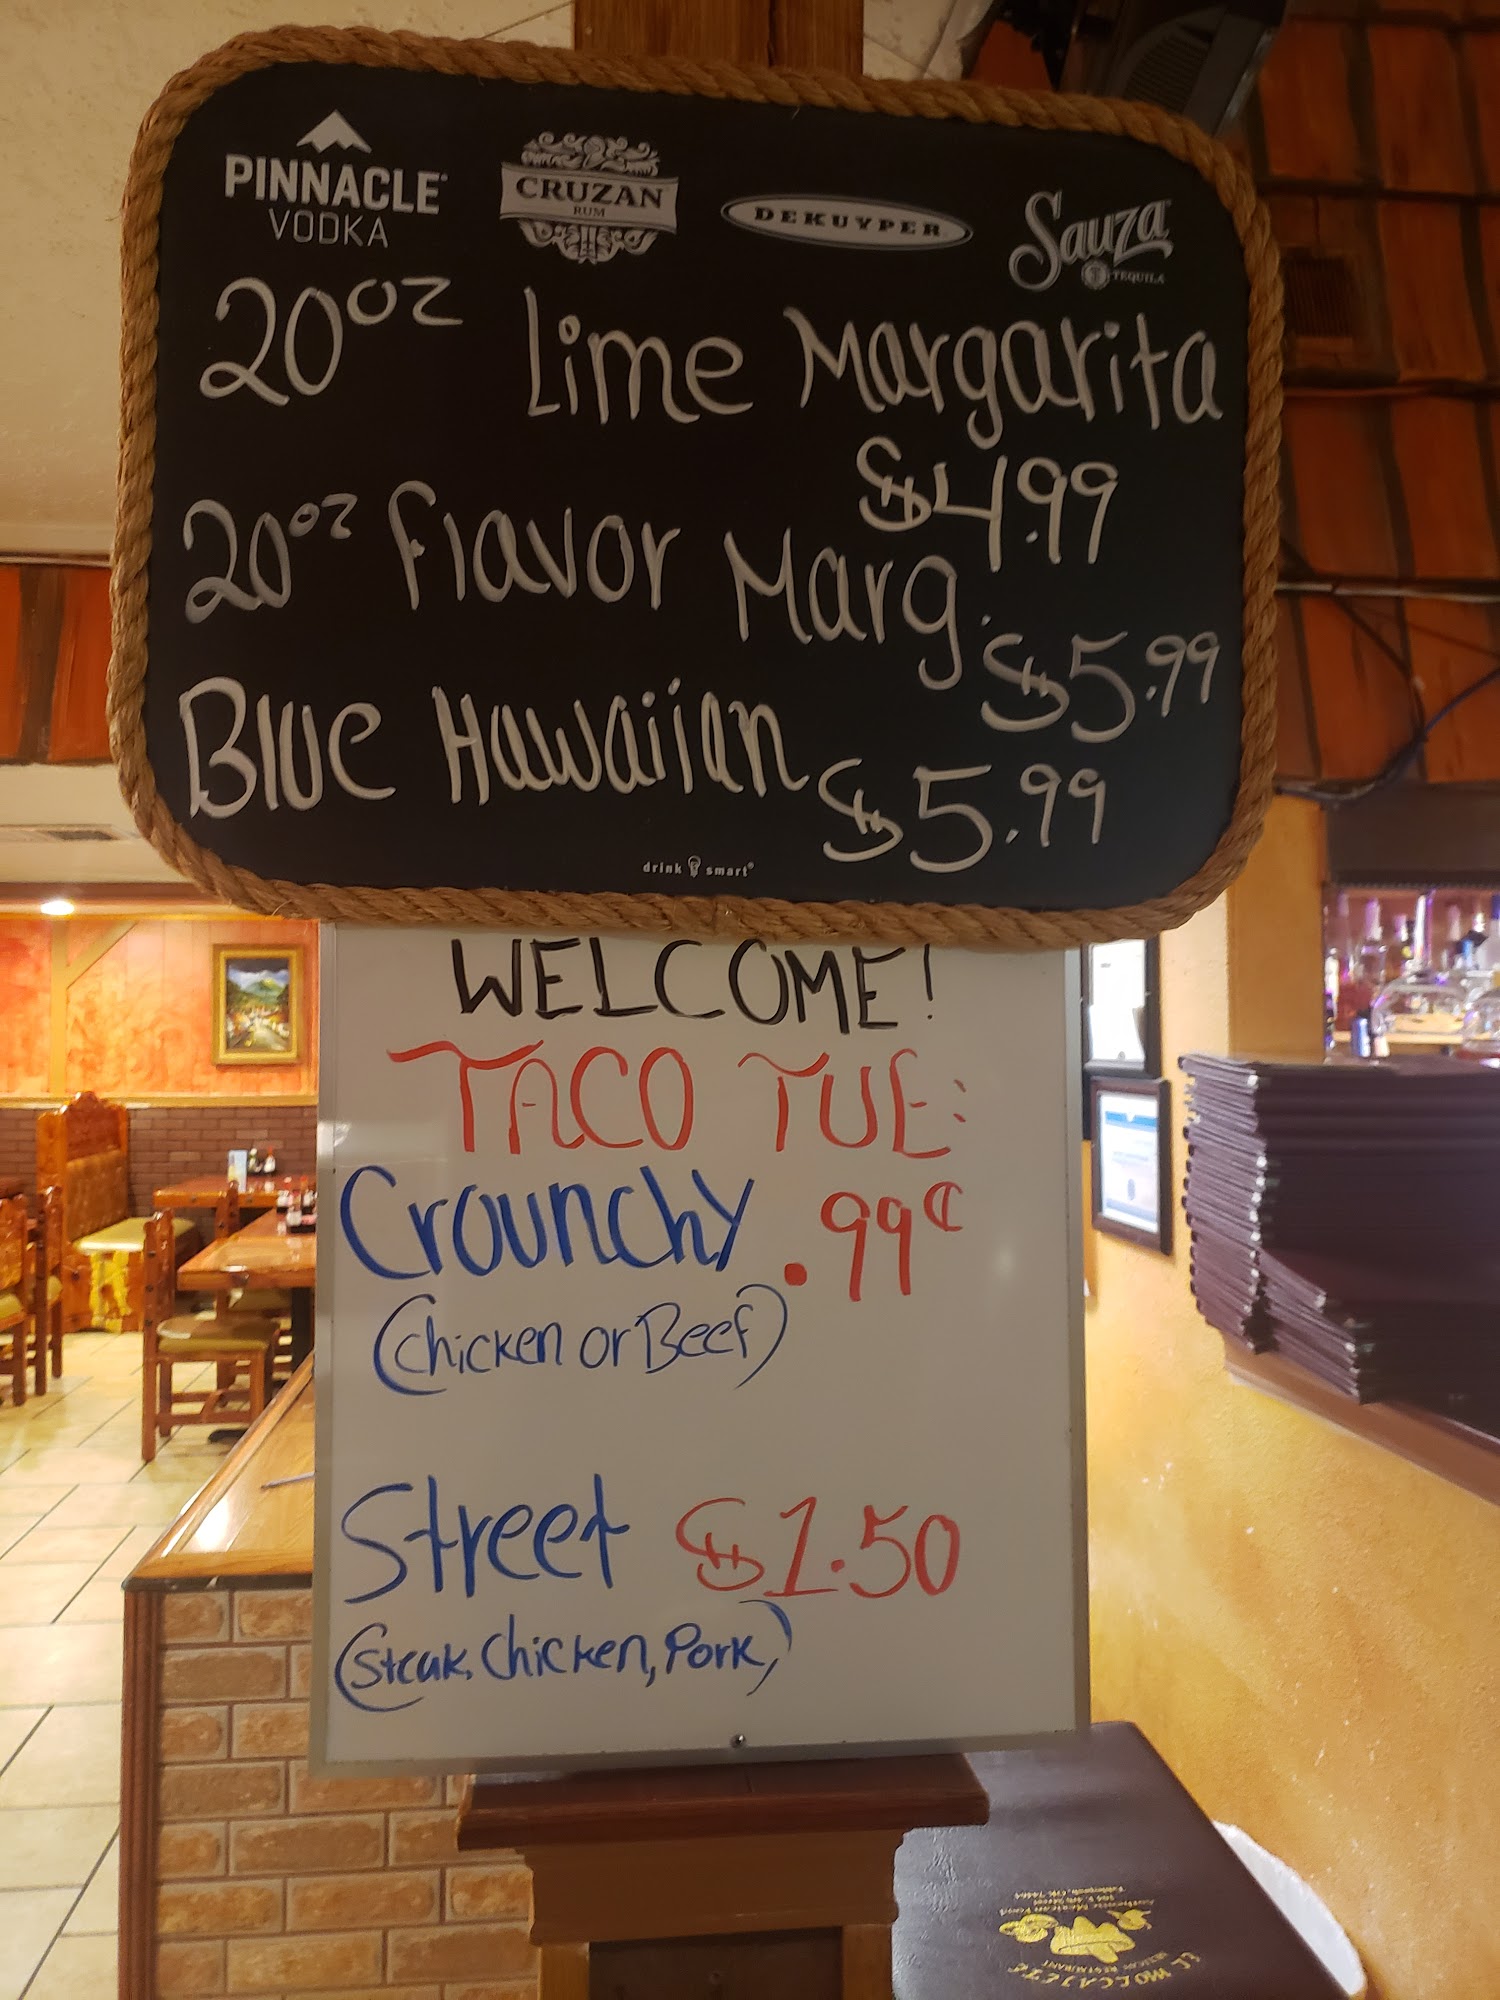 PINNACLE
VODKA
CRUZAN
RUM
DEKUYPER
Sauza
TEQUILA
20oz Lime Margarita
$4.99
20oz Flavor Marg.
$5.99
Blue Hawaiian $5.99
drink smart®
WELCOME!
TACO TUE:
Crounchy .99¢
(Chicken or Beef)
Street $1.50
(Steak, Chicken, Pork,)
EL MOLCAJETE
MEXICAN RESTAURANT
Authentic Mexican Food
Tahlequah, OK 74464